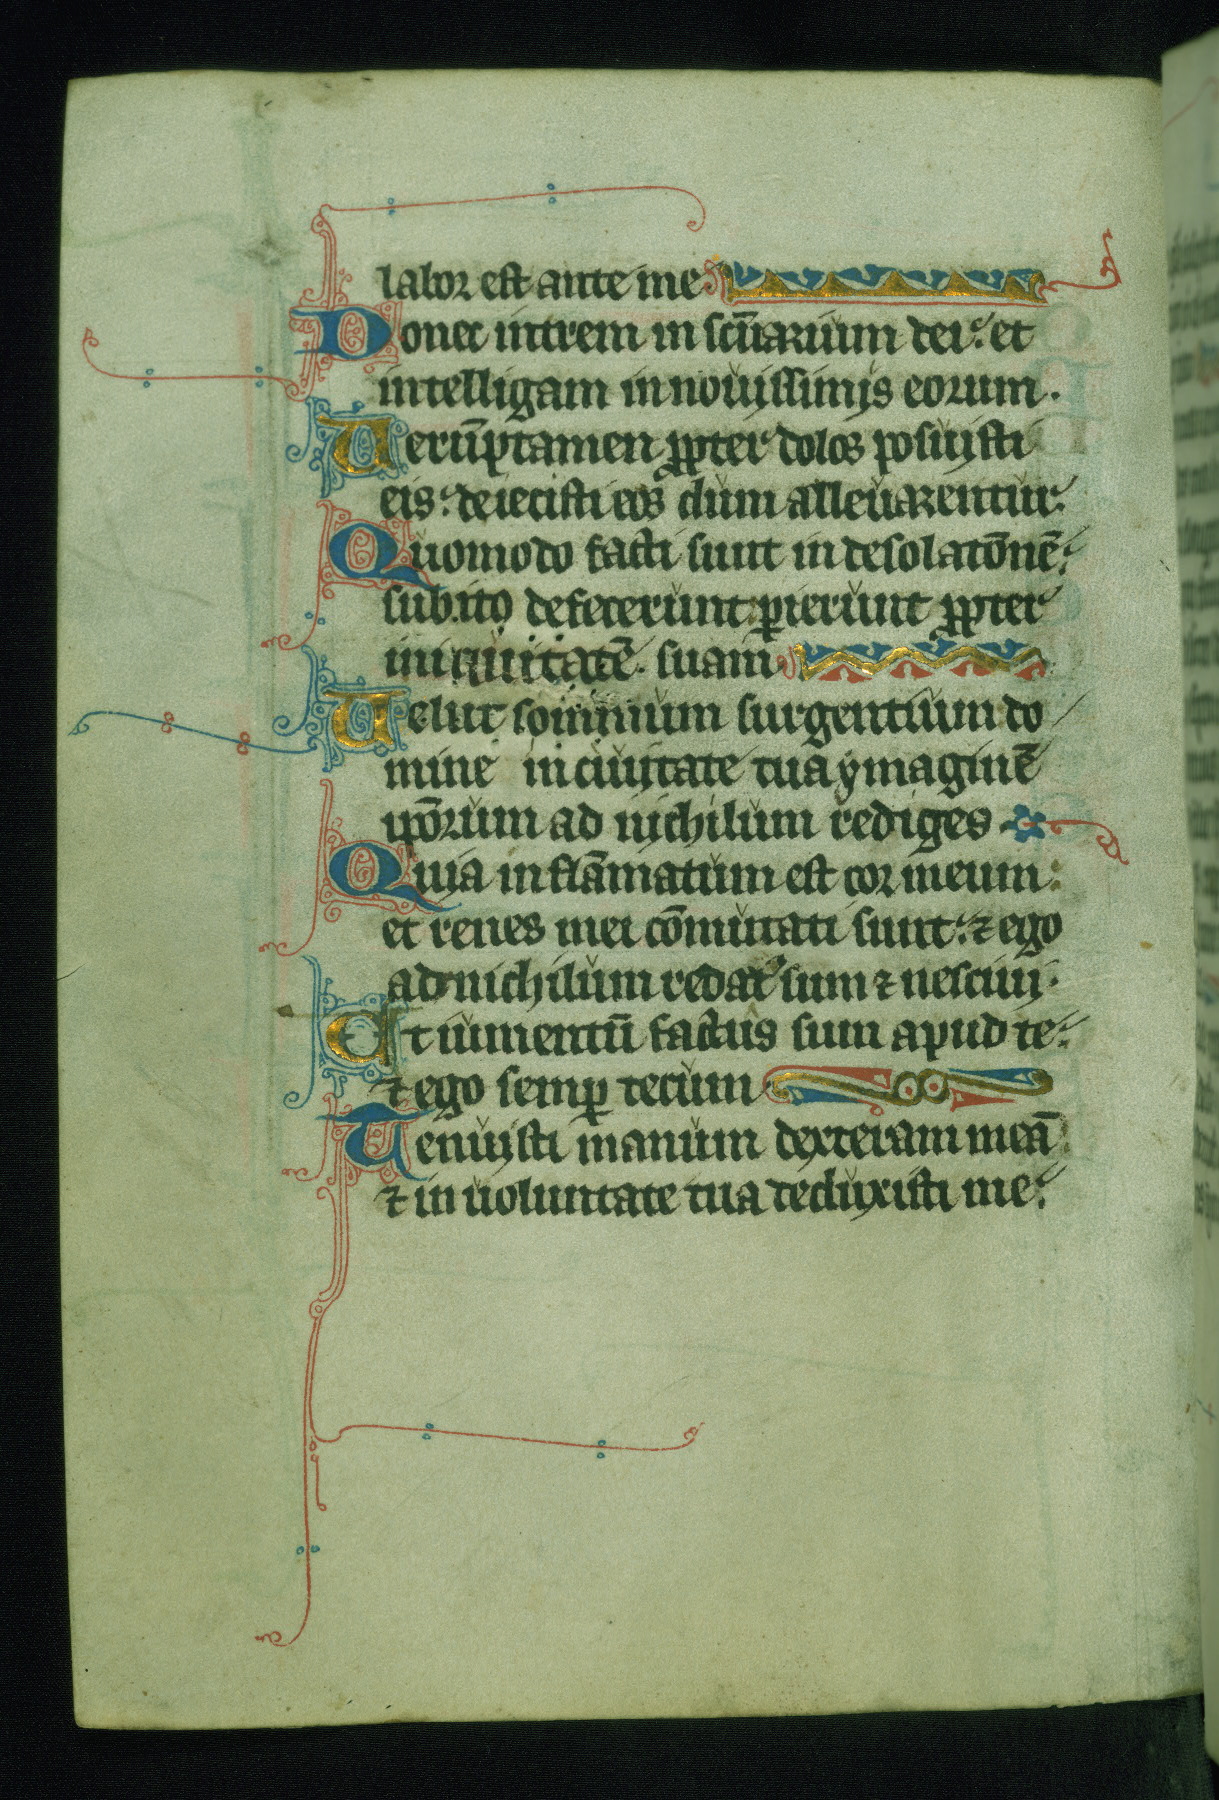 labor est ante me
Donec intrem in scūarium dei: et
intelligam in novissimis eorum.
Uerūptamen ꝓpter dolos posuisti
eis: deiecisti eos dum allevarentur:
Quomodo facti sunt in desolatōnē:
subito defecerunt ꝑierunt ꝓpter
iniquitatē suam
Uelut sompnium surgentium do
mine in civitate tua ymaginē
ip̄orum ad nichilum rediges
Quia inflāmatum est cor meum:
et renes mei cōmutati sunt: ⁊ ego
ad nichilum redact' sum ⁊ nescivi.
Ut iumentū factus sum apud te:
⁊ ego semꝑ tecum
Tenuisti manum dexteram meā
⁊ in uoluntate tua deduxisti me: